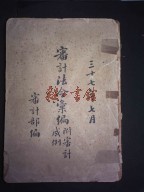 三十七年七月
審計法令彙編 附審計成例
審計部編